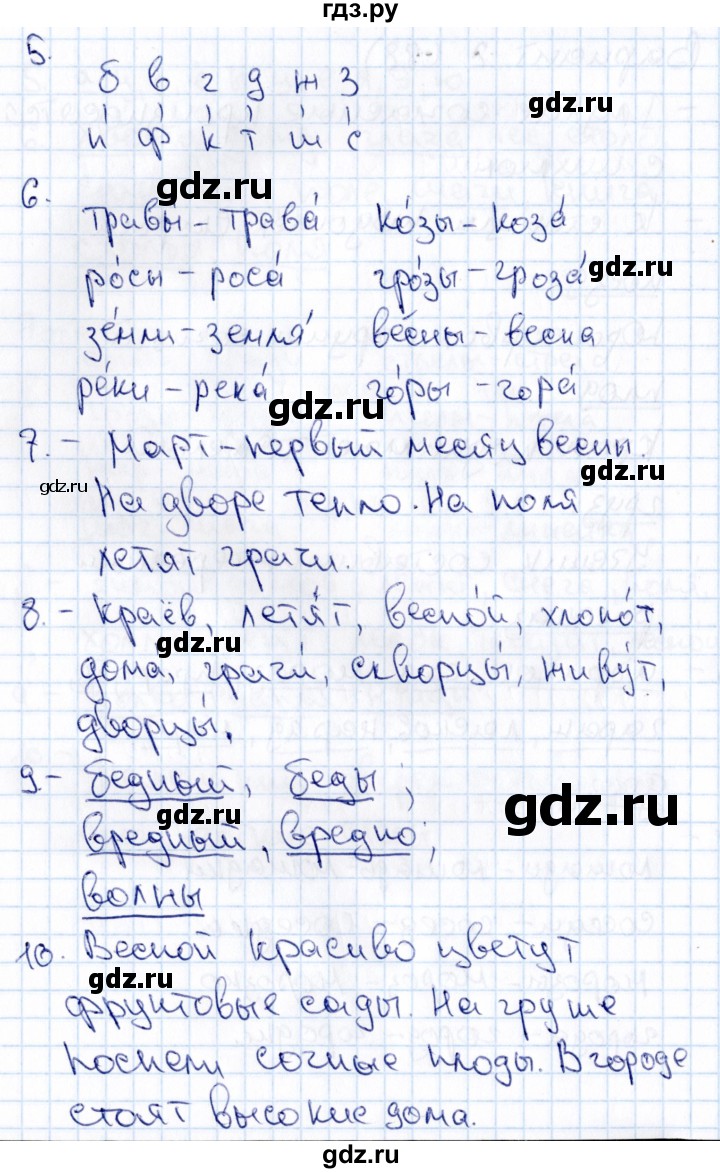 гдз.ру
5.
б в г д ж з
п ф к т ш с
gdz.ru
6.
травы́ – трава́ ко́зы – коза́
gdz.ru
ро́сы – роса́ гро́зы – гроза́
зе́мли – земля́ вёсны – весна
ре́ки – река́ го́ры – гора́
gdz.ru
7. – Март – первый месяц весны.
gdz.ru
gdz.ru
На дворе тепло. На поля
летят грачи.
8. – Краёв, летя́т, весно́й, хлопо́т,
gdz.ru
дома, грачи́, скворцы́, живу́т,
дворцы́.
9. – бедный, беды;
gdz.ru
вредный, вредно;
волны
10. Весной красиво цветут
gdz.ru
фруктовые сады. На груше
поспели сочные плоды. В городе
gdz.ru
стоят высокие дома.
gdz.ru